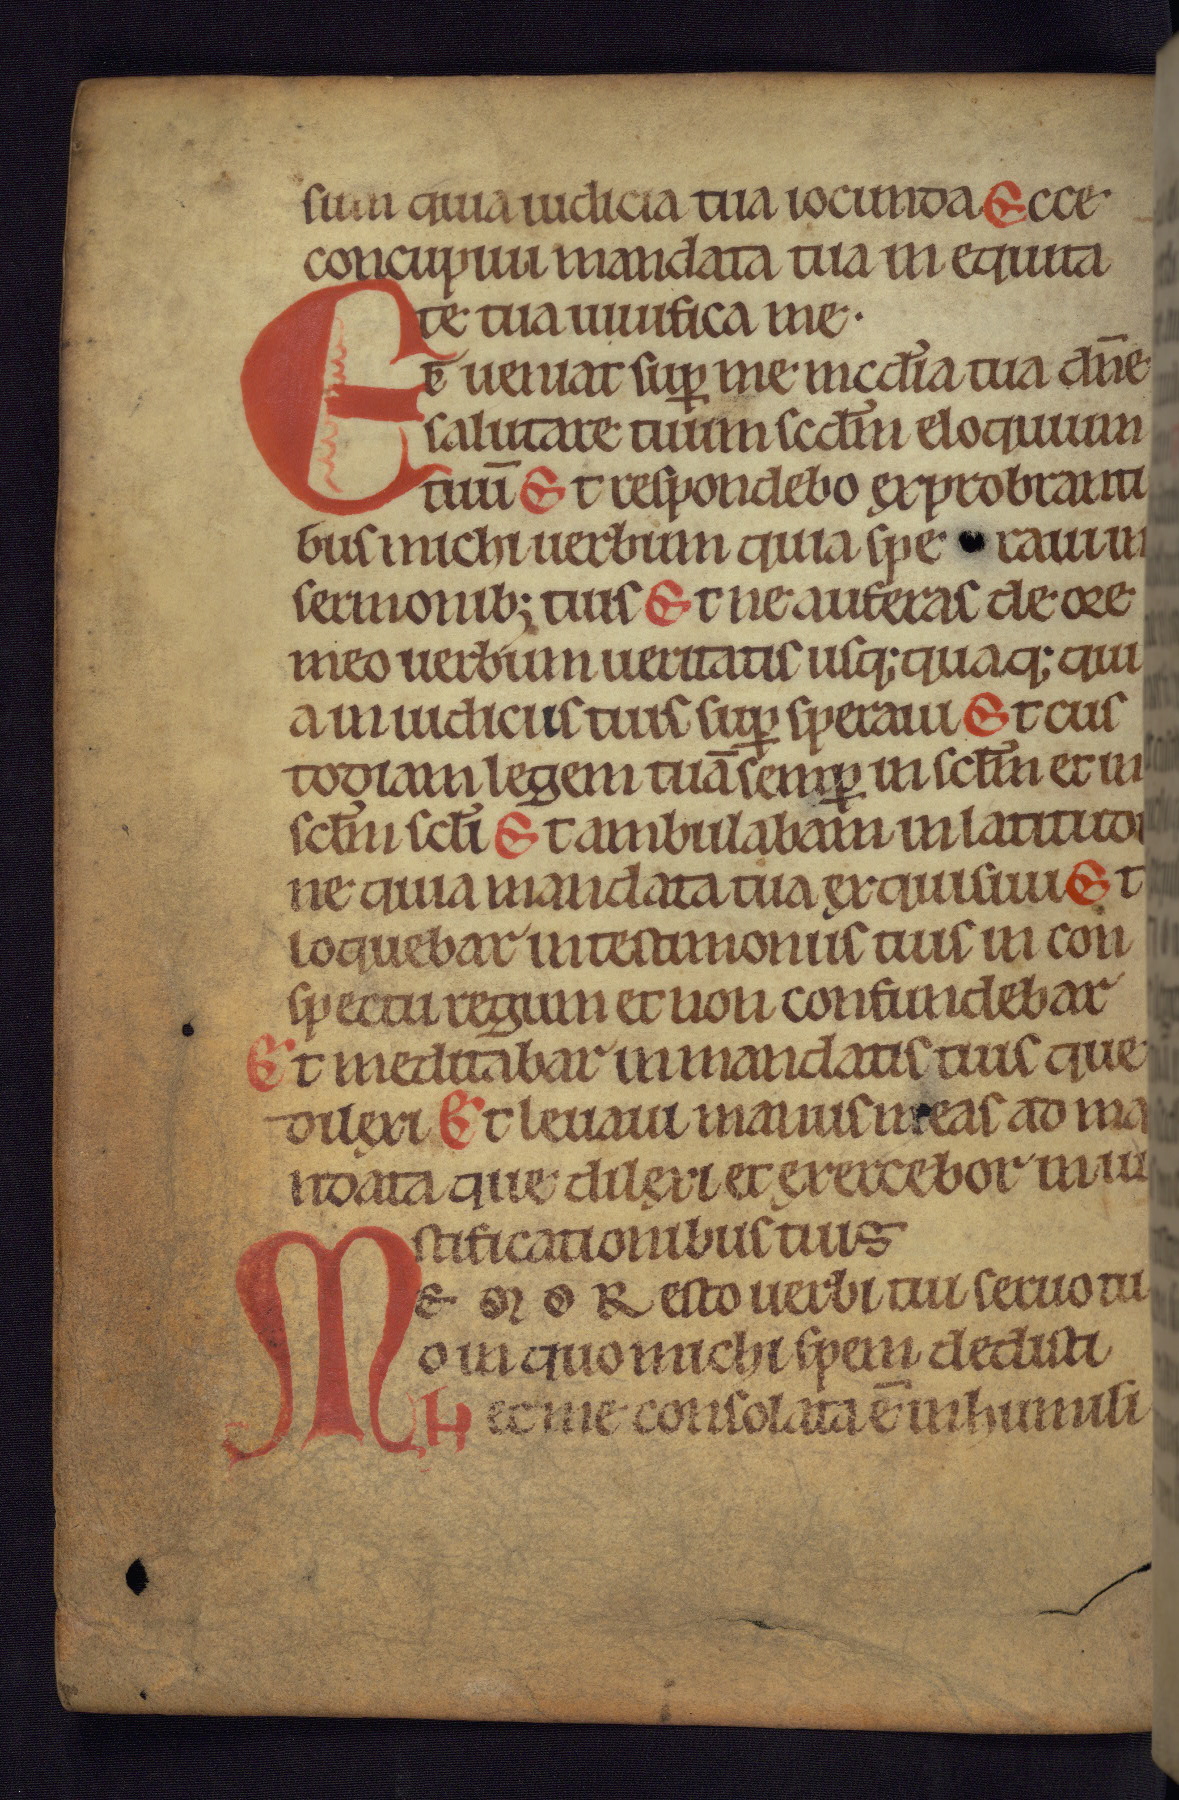 sum quia iudicia tua iocunda Ecce
concupiui mandata tua in equita
te tua uiuifica me.
Et ueniat sup me mcdia tua dn̄e
salutare tuum scdm eloquium
tuū Et respondebo exprobranti
bus michi uerbum quia spe raui in
sermonib; tuis Et ne auferas de ore
meo uerbum ueritatis usq; quaq; qui
a in iudiciis tuis sup speraui Et cus
todiam legem tuā semp in sclm et in
sclm scli Et ambulabam in latitudi
ne quia mandata tua exquisiui Et
loquebar in testimoniis tuis in con
spectu regum et non confundebar
Et meditabar in mandatis tuis que
dilexi Et leuaui manus meas ad ma
ndata que dilexi et exercebor in iu
stificationibus tuis
MEMOR esto uerbi tui seruo tu
o in quo michi spem dedisti
Hec me consolata ē in humili